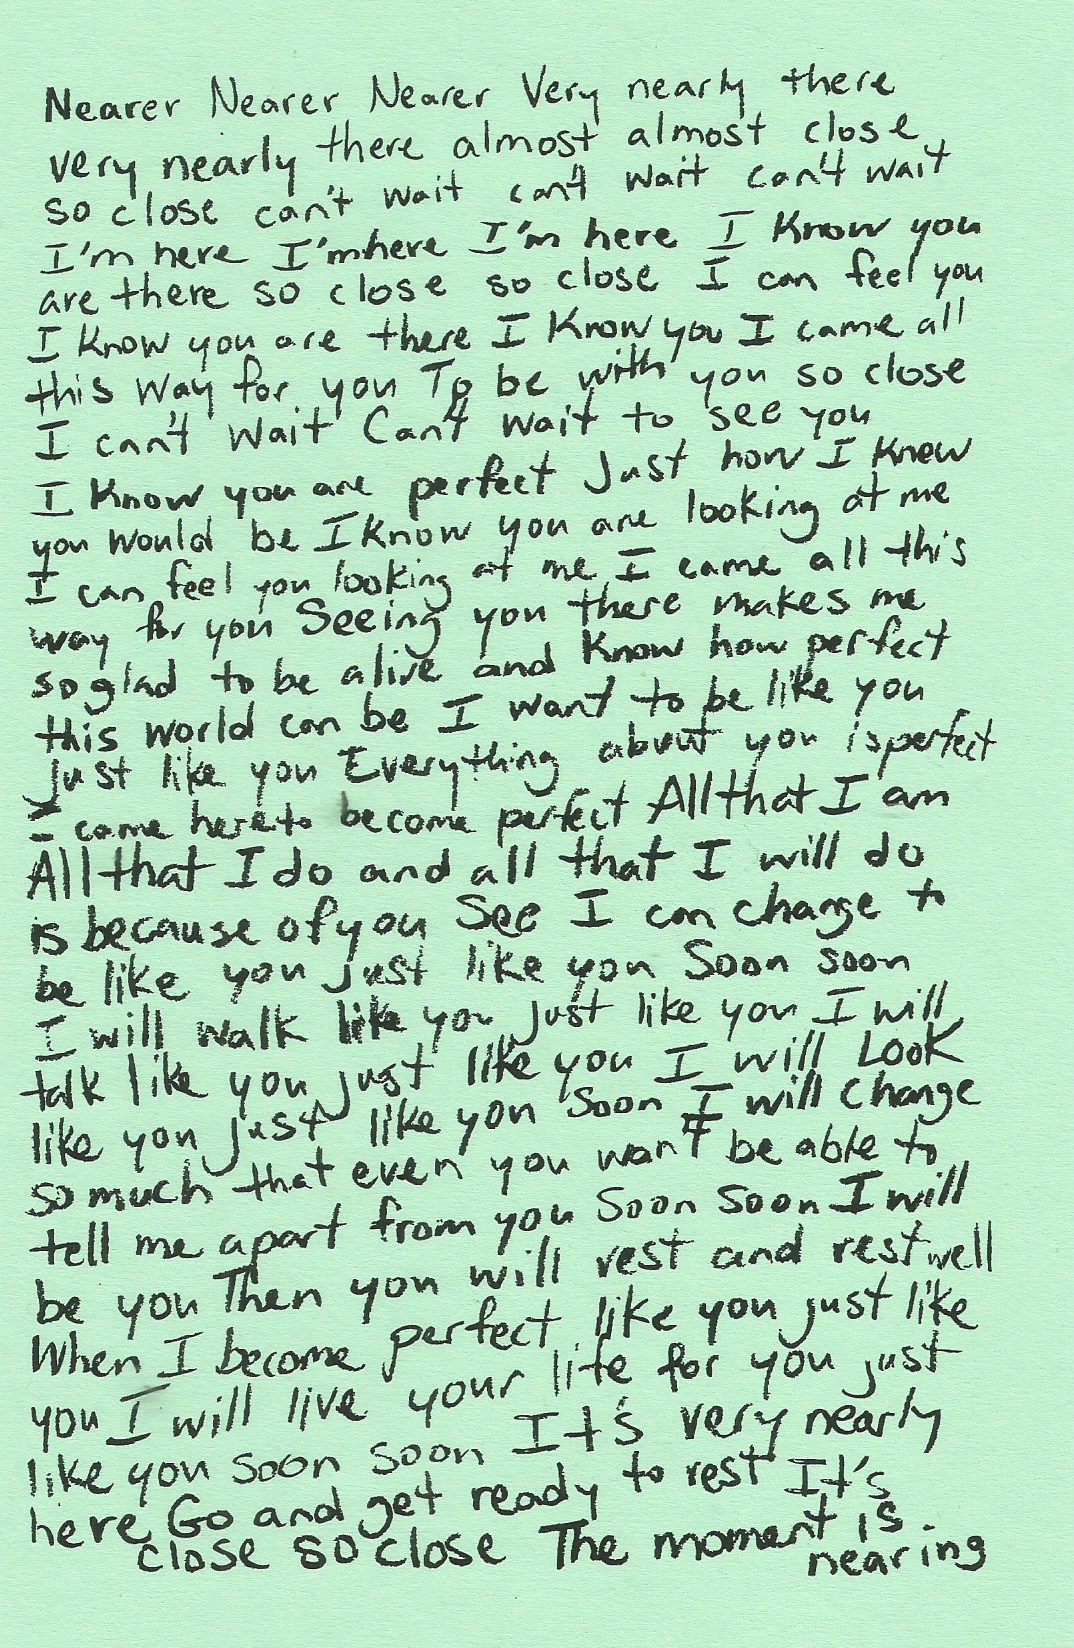 Nearer Nearer Nearer Very nearly there
very nearly there almost almost close
so close can't wait can't wait can't wait
I'm here I'm here I'm here I know you
are there so close so close I can feel you
I know you are there I know you I came all
this way for you To be with you so close
I can't wait Can't wait to see you
I know you are perfect Just how I knew
you would be I know you are looking at me
I can feel you looking at me I came all this
way for you Seeing you there makes me
so glad to be alive and know how perfect
this world can be I want to be like you
Just like you Everything about you is perfect
I came here to become perfect All that I am
All that I do and all that I will do
is because of you See I can change to
be like you just like you Soon soon
I will walk like you just like you I will
talk like you just like you I will Look
like you just like you Soon I will change
so much that even you won't be able to
tell me apart from you Soon Soon I will
be you Then you will rest and rest well
When I become perfect like you just like
you I will live your life for you just
like you soon soon It's very nearly
here Go and get ready to rest It's
close so close The moment is
nearing